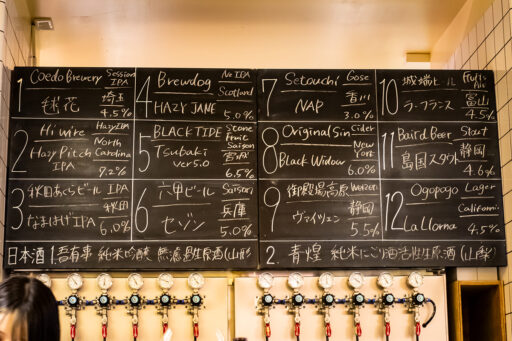 1 Coedo Brewery Session IPA
毬花 埼玉 4.5%
2 Hi wire Hazy IPA
Hazy Pitch North Carolina
7.2%
3 秋田あくらビール IPA
なまはげIPA 秋田 6.0%
4 Brewdog NE IPA
Scotland
HAZY JANE 5.0%
5 BLACK TIDE Stone fruit Saison
Tsubaki ver5.0 宮城 6.5%
6 六甲ビール Saison
セゾン 兵庫 5.0%
7 Setouchi Gose
NAP 香川 3.0%
8 Original Sin Cider
Black Widow New York 6.0%
9 御殿場高原 Weizen
ヴァイツェン 静岡 5.5%
10 城端ビール Fruits Ale
ラ・フランス 富山 4.5%
11 Baird Beer Stout
島国スタウト 静岡 4.6%
12 Ogopogo Lager
La Llorna California 4.5%
日本酒 1. 吾有事 純米吟醸 無濾過生原酒(山形)
2. 青煌 純米にごり活性生原酒(山梨)